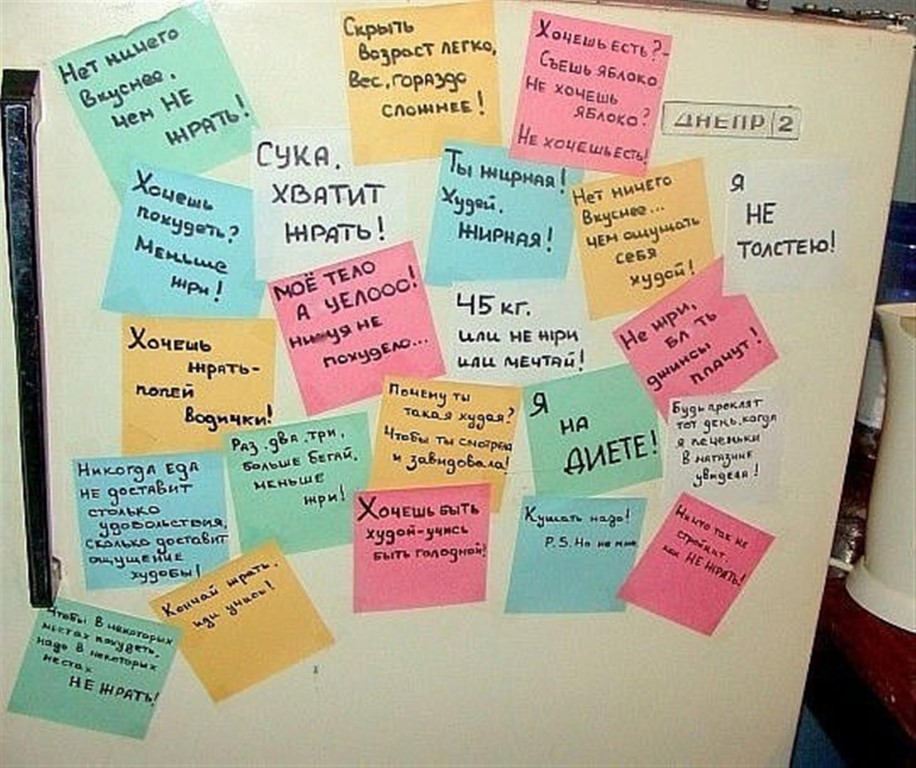 Нет ничего
вкуснее,
чем НЕ
ЖРАТЬ!
Скрыть
возраст легко,
вес, гораздо
сложнее!
Хочешь есть?-
Съешь яблоко
Не хочешь
яблоко?
Не хочешь есть!
ДНЕПР 2
Хочешь
похудеть?
Меньше
жри!
СУКА.
ХВАТИТ
ЖРАТЬ!
Ты жирная!
Худей.
ЖИРНАЯ!
Нет ничего
вкуснее...
чем ощущать
себя
худой!
Я
НЕ
ТОЛСТЕЮ!
МОЁ ТЕЛО
А ЧЕЛООО!
ни уя не
похудело...
45 кг.
или не жри
или мечтай!
Не жри,
бл ть
джинсы
плачут!
Хочешь
жрать-
попей
водички!
Почему ты
такая худая?
Чтобы ты смотрела
и завидовала!
Я
НА
ДИЕТЕ!
Будь проклят
тот день, когда
я печеньки
в магазине
увидела!
Никогда ЕДА
не доставит
столько
удовольствия,
сколько доставит
ощущение
худобы!
Раз, два, три,
больше бегай,
меньше
жри!
Хочешь быть
худой-учись
быть голодной!
Кушать надо!
P.S. Но не мне
Ничто так не
стройнит
как НЕ ЖРАТЬ!
Кончай жрать,
иди учись!
Чтобы в некоторых
местах похудеть,
надо в некоторых
местах
НЕ ЖРАТЬ!